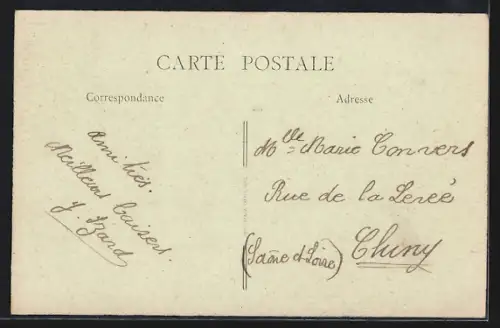 CARTE POSTALE
Correspondance
Adresse
amitiés.
Meilleurs baisers.
Y. Izard
Mlle Marie Convers
Rue de la Levée
(Saône et Loire) Cluny